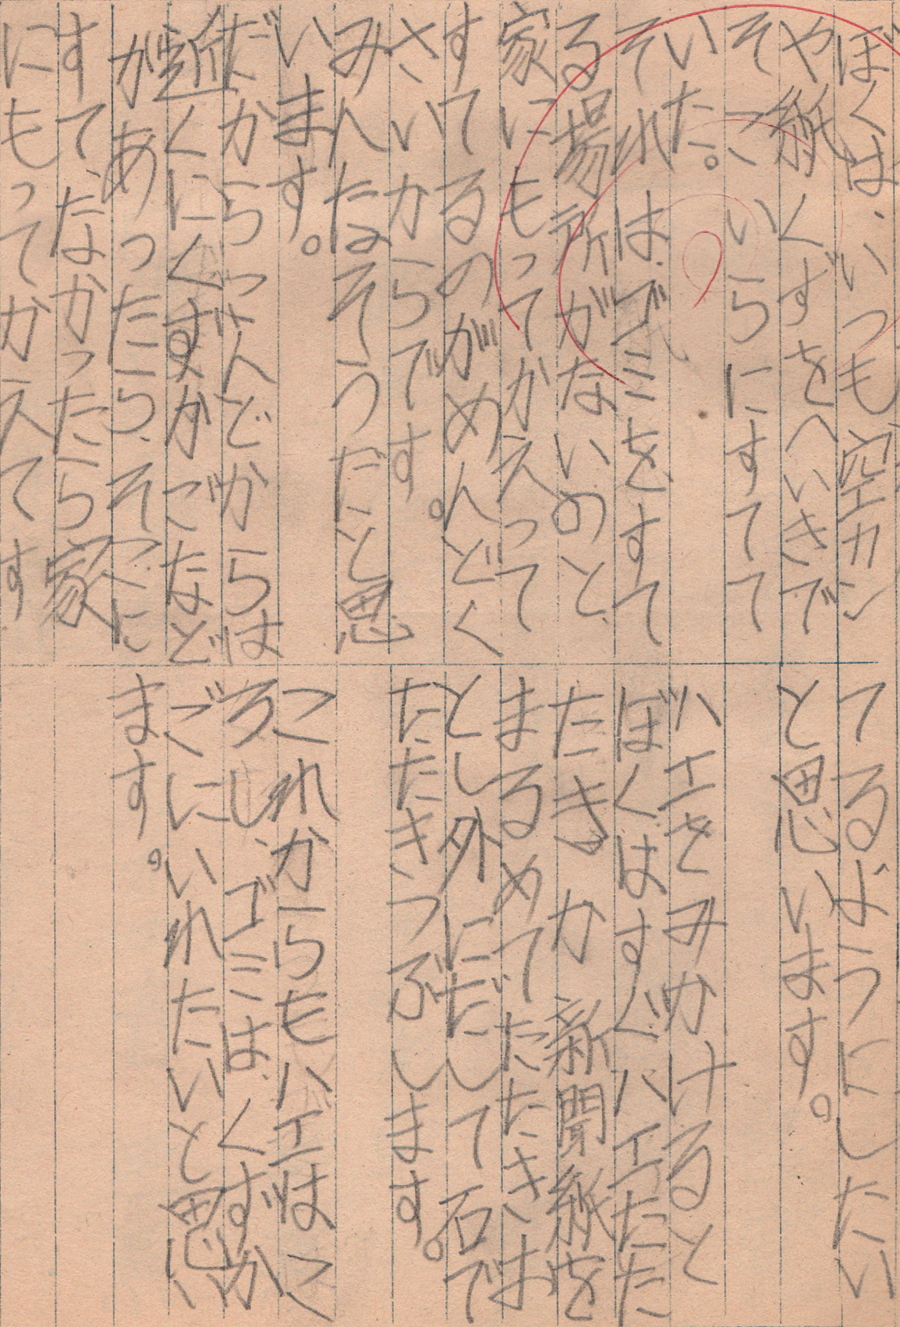 ぼくは、いつも空カン
や紙くずをへいきで
そこいらにすてて
いた。
それはゴミをすて
る場所がないのと、
家にもってかえって
すてるのがめんどく
さいからです。
みんなそうだと思
います。
だからつぎんどからは
近くにくずかごなど
があったら、そこに
すて、なかったら家
にもってかえてす
てるようにしたい
と思います。
ハエをみかけると
ぼくはすぐ、ハエたた
たきか新聞紙を
まるめてたたきお
とし外にだして石で
たたきつぶします。
これからもハエはこ
ろし、ゴミは、くずか
ごにいれたいと思い
ます。